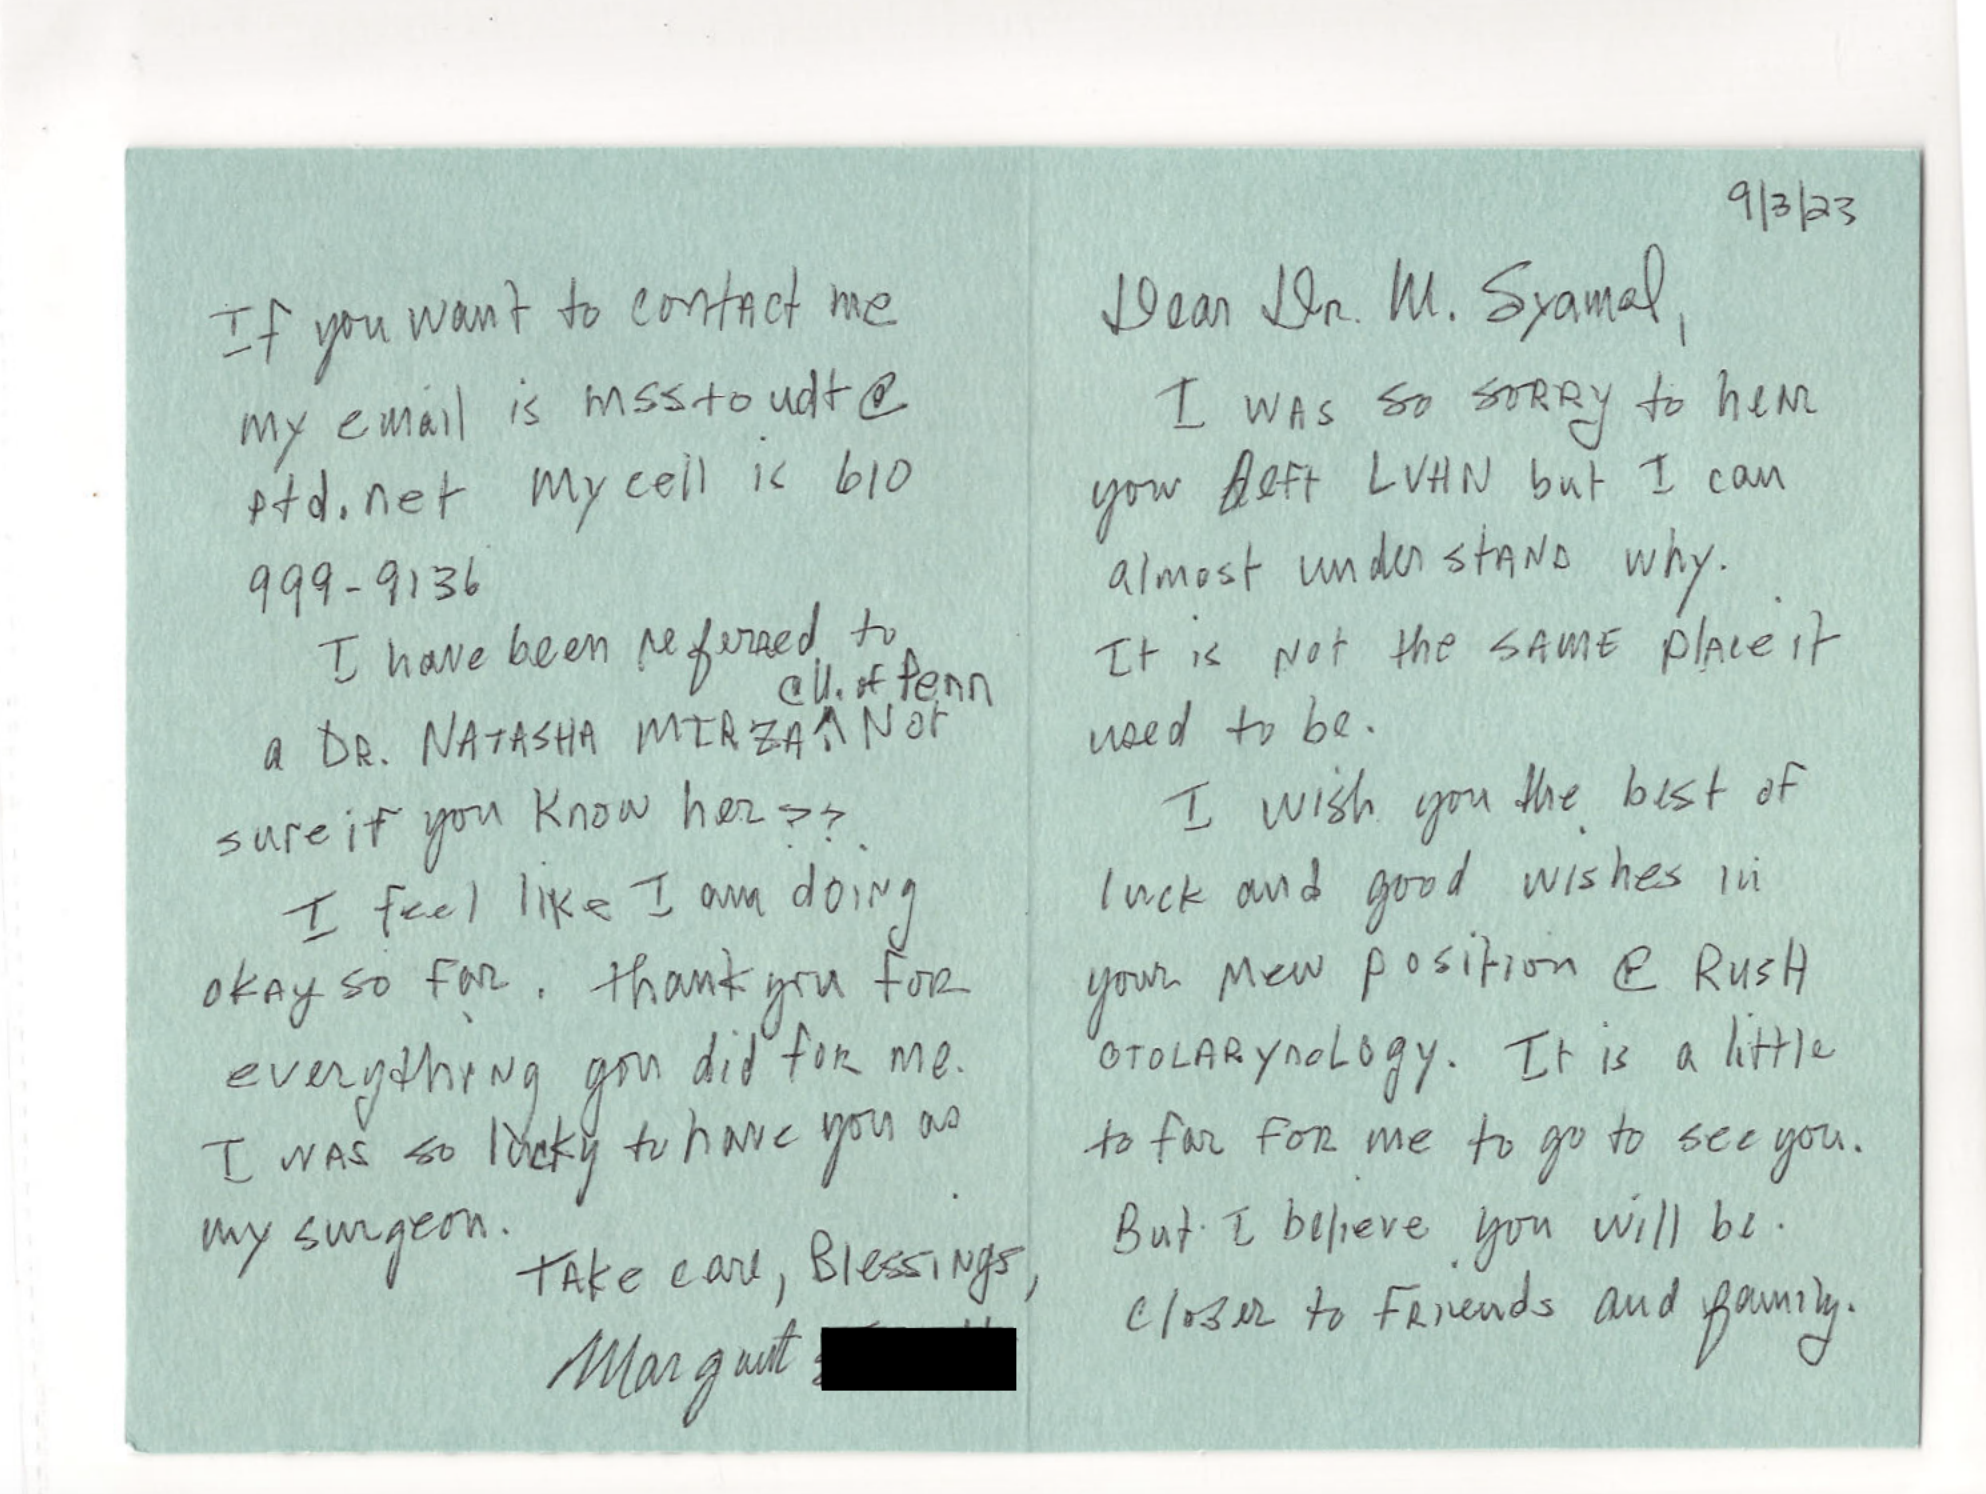 9/3/23
Dear Dr. M. Syamal,
I WAS so SORRY to hear
you left LVHN but I can
almost understAND why.
It is Not the SAME plAce it
used to be.
I wish you the best of
luck and good wishes in
your New position @ RusH
OTOLARynoLOgy. It is a little
to far FOR me to go to see you.
But I believe you will be.
closer to FRiends and family.
If you want to contAct me
my email is msstoudt@
ptd.net My cell is 610
999-9136
I have been referred to
@ U. of Penn
a DR. NATASHA MIRZA ^ Not
sure if you know her??
I feel like I am doing
okAy so far. thank you foR
everythiNg you did foR me.
I WAS so lucky to have you as
my surgeon.
TAke care, BlessiNgs,
Margaret